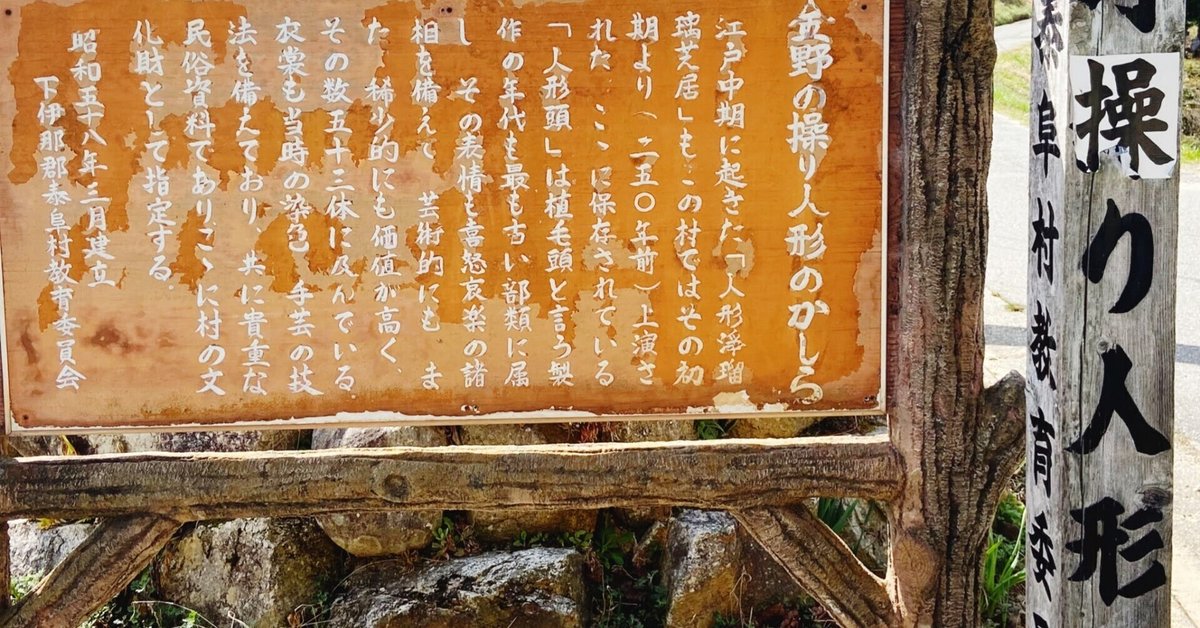 金野の操り人形のかしら
江戸中期に起きた「人形浄瑠
璃芝居」もこの村ではその初
期より(二五〇年前)上演さ
れた、こゝに保存されている
「人形頭」は植毛頭と言う製
作の年代も最も古い部類に属
し その表情も喜怒哀楽の諸
相を備えて 芸術的にも ま
た 稀少的にも価値が高く、
その数五十三体に及んでいる
衣裳も当時の染色 手芸の技
法を備えており、共に貴重な
民俗資料でありこゝに村の文
化財として指定する。
昭和五十八年三月建立
下伊那郡泰阜村教育委員会
操り人形
泰阜村教育委